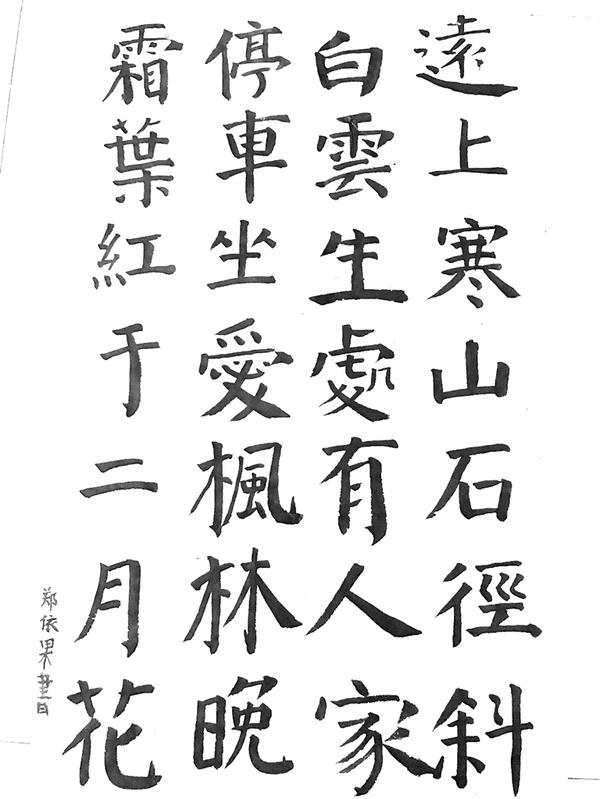 遠上寒山石徑斜
白雲生處有人家
停車坐愛楓林晚
霜葉紅于二月花
郑依果書